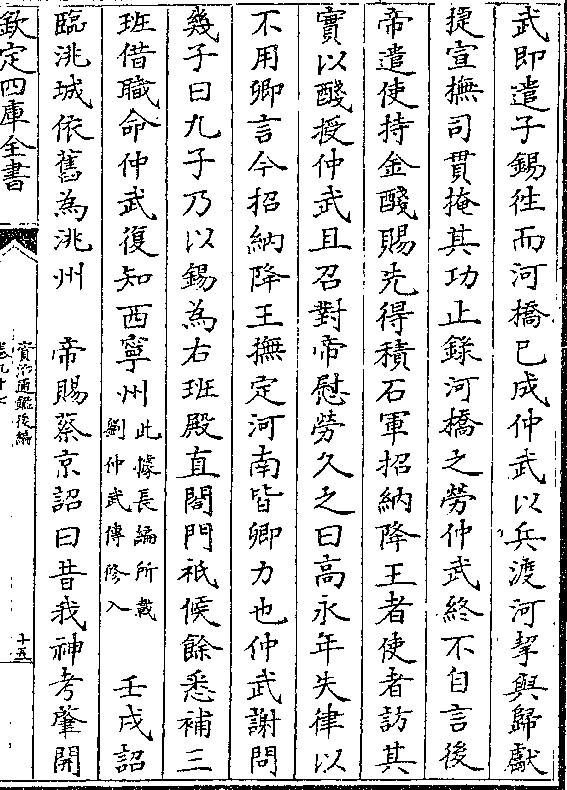 武即遣子錫徃而河橋已成仲武以兵渡河挈與歸獻
捷宣撫司貫掩其功止錄河橋之勞仲武終不自言後
帝遣使持金醆賜先得積石軍招納降王者使者訪其
實以醆授仲武且召對帝慰勞久之曰高永年失律以
不用卿言今招納降王撫定河南皆卿力也仲武謝問
幾子曰九子乃以錫為右班殿直閤門祇候餘悉補三
班借職命仲武復知西寧州此據長編所載
劉仲武傳修入 壬戌詔
臨洮城依舊為洮州 帝賜蔡京詔曰昔我神考肇開
欽定四庫全書
資治通鑑後編
卷九十七
十五